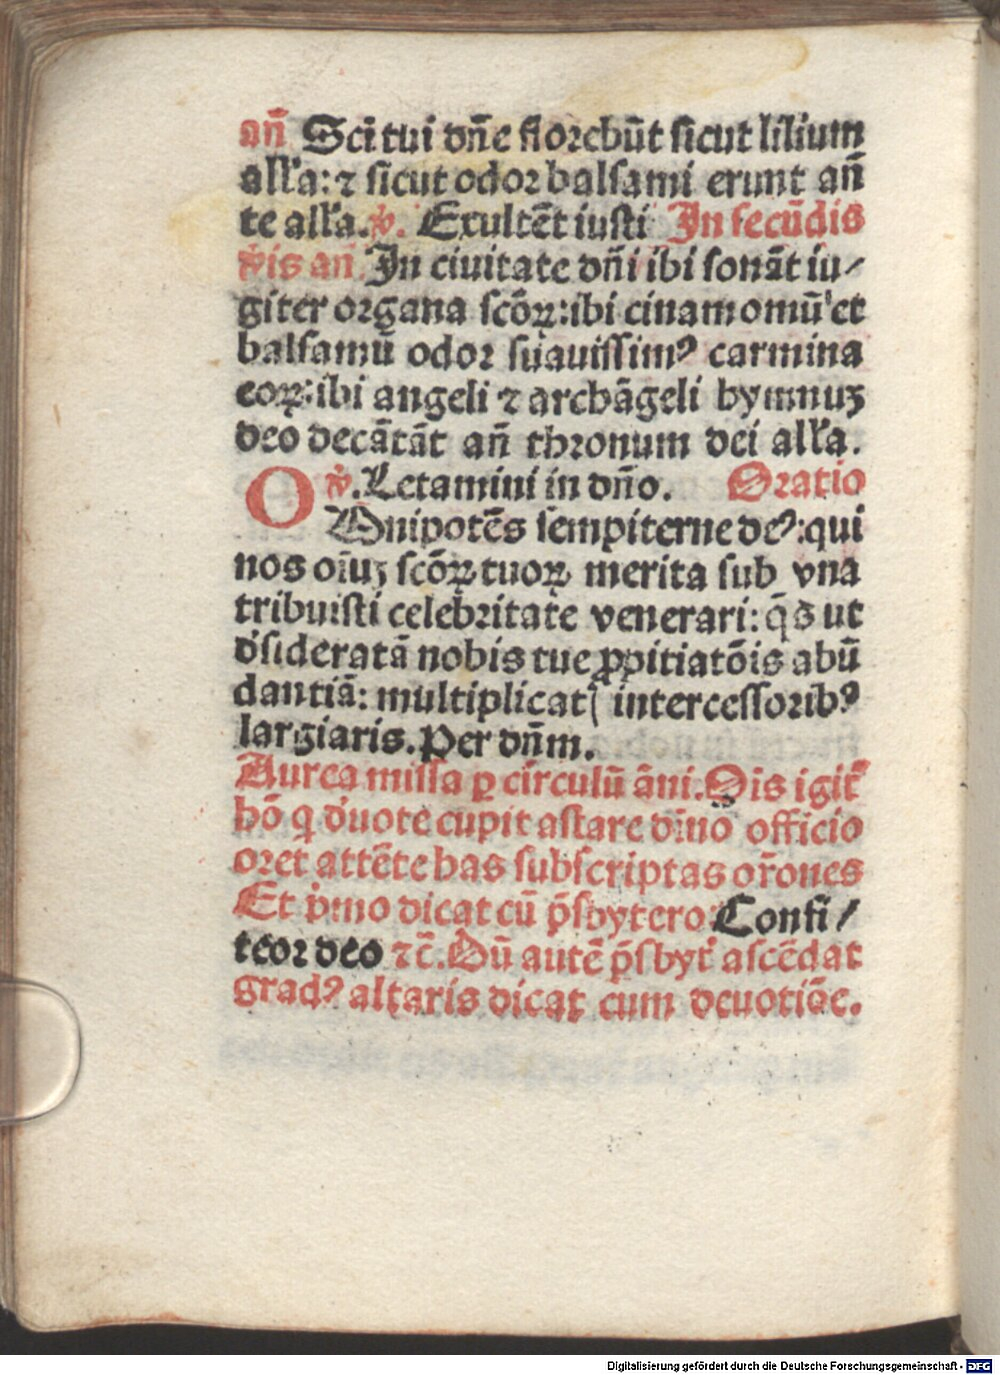 añ Scī tui dñe florebūt sicut lilium
all'a: ⁊ sicut odoꝛ balsami erunt añ
te all'a. ℣. Exultēt iusti In secūdis
℣is añ. In ciuitate dñi ibi sonāt iu⸗
giter oꝛgana scōꝝ: ibi cinamomū et
balsamū odoꝛ suauissimꝰ carmina
eoꝝ: ibi angeli ⁊ archāgeli hymnuꝫ
deo decātāt añ thronum dei all'a.
℣. Letamini in dño. Oratio
OMnipotēs sempiterne deꝰ: qui
nos oīuꝫ scōꝝ tuoꝝ merita sub vna
tribuisti celebꝛitate venerari: q̄s ut
d'sideratā nobis tue ꝓpitiatōis abū
dantiā: multiplicatꝭ intercessoꝛibꝰ
largiaris. Per dñm.
Aurea missa ꝑ circulū āni. Ois igit̃
hō q d'uote cupit astare dīno officio
oꝛet attēte has subscriptas oꝛ̃ones
Et pͥmo dicat cū p̄sbytero: Confi⸗
teoꝛ deo ⁊c̄. Dū autē p̄sbyt' ascēdat
gradꝰ altaris dicat cum deuotiōe.
Digitalisierung gefördert durch die Deutsche Forschungsgemeinschaft - DFG